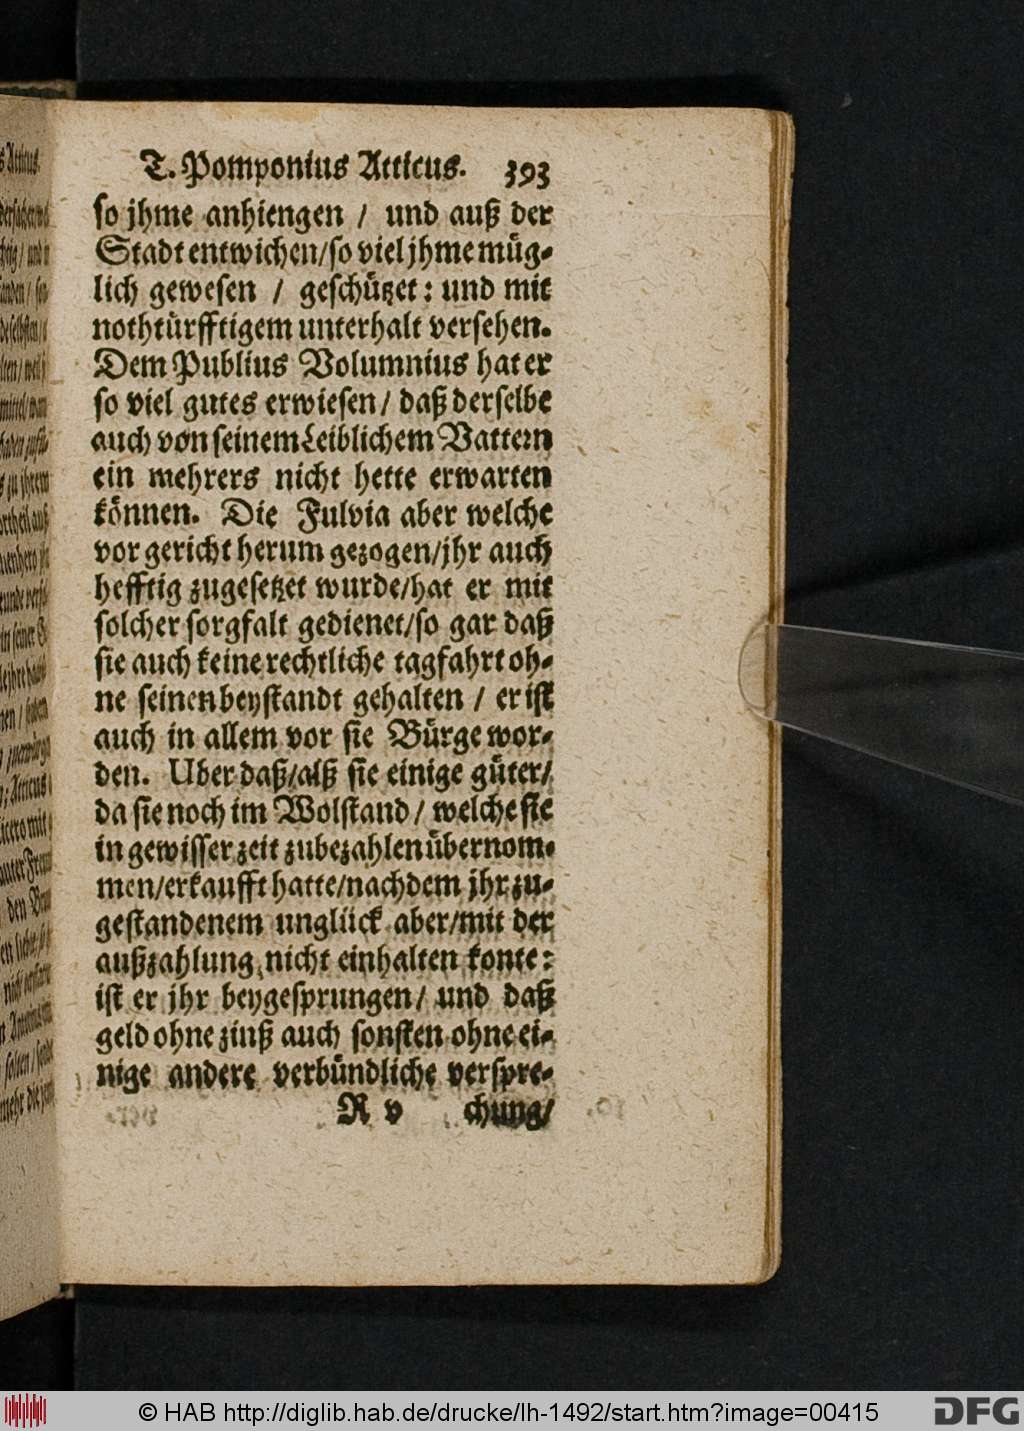 T. Pomponius Atticus. 393
so jhme anhiengen / und auß der
Stadt entwichen/so viel jhme müg-
lich gewesen / geschützet: und mit
nothtürfftigem unterhalt versehen.
Dem Publius Volumnius hat er
so viel gutes erwiesen/ daß derselbe
auch von seinem Leiblichem Vattern
ein mehrers nicht hette erwarten
können. Die Fulvia aber welche
vor gericht herum gezogen/jhr auch
hefftig zugesetzet wurde/hat er mit
solcher sorgfalt gedienet/so gar daß
sie auch keine rechtliche tagfahrt oh-
ne seinen beystandt gehalten / er ist
auch in allem vor sie Bürge wor-
den. Uber daß/alß sie einige güter/
da sie noch im Wolstand/ welche sie
in gewisser zeit zubezahlen übernom-
men/erkaufft hatte/nachdem jhr zu-
gestandenem unglück aber/mit der
außzahlung nicht einhalten konte:
ist er jhr beygesprungen/ und daß
geld ohne zinß auch sonsten ohne ei-
nige andere verbündliche verspre-
R v chung/
© HAB http://diglib.hab.de/drucke/lh-1492/start.htm?image=00415
DFG